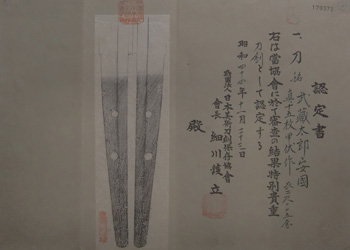 認定書
一、刀 銘 武蔵太郎安國
真十五枚甲伏作
右は當協會に於て審査の結果特別貴重
刀剣として認定する
昭和四十年十一月二十三日
財團法人日本美術刀剣保存協會
會長 細川護立
殿